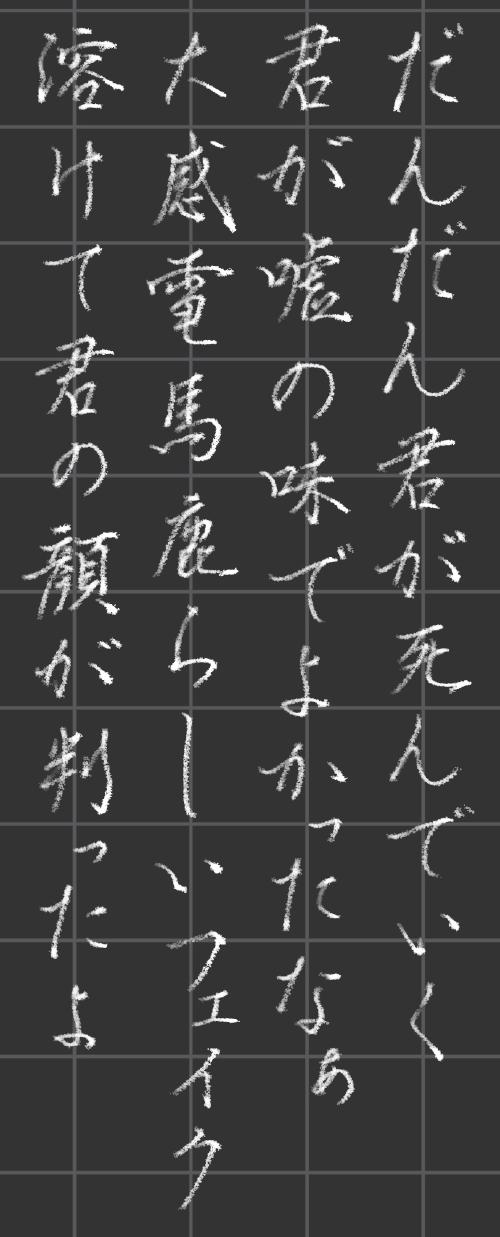 だんだん君が死んでいく
君が嘘の味でよかったなあ
大感電馬鹿らしいフェイク
溶けて君の顔が判ったよ